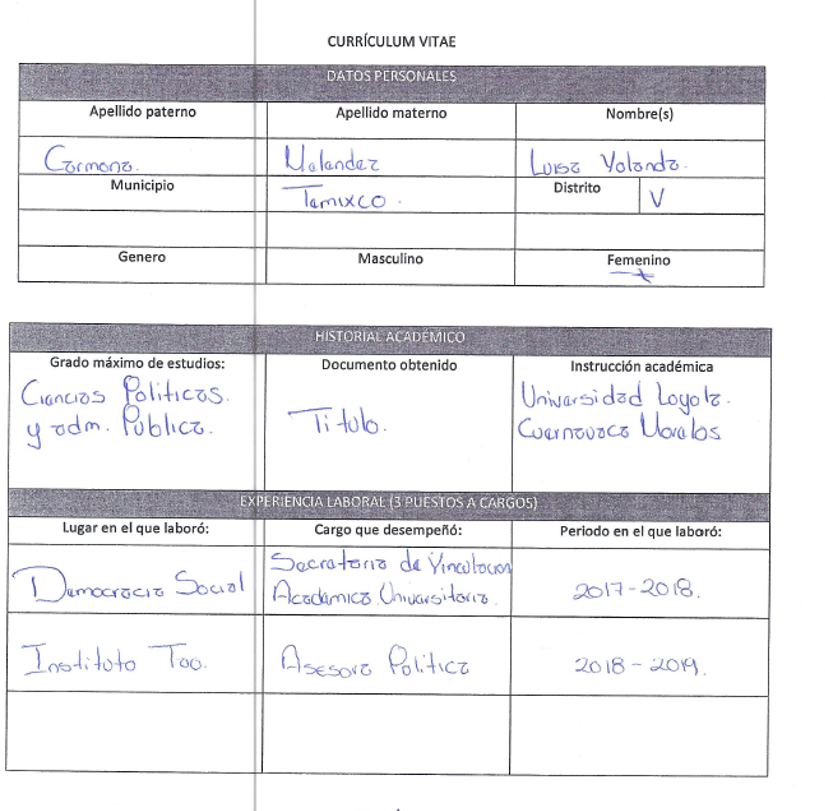 CURRÍCULUM VITAE
DATOS PERSONALES
Apellido paterno Apellido materno Nombre(s)
Carmona. Melendez Luisa Yolanda.
Municipio Temixco. Distrito V
Genero Masculino Femenino
HISTORIAL ACADÉMICO
Grado máximo de estudios: Documento obtenido Instrucción académica
Ciencias Politicas. Titulo. Universidad Loyola.
y adm. Pública. Cuernavaca Morelos
EXPERIENCIA LABORAL (3 PUESTOS A CARGOS)
Lugar en el que laboró: Cargo que desempeñó: Periodo en el que laboró:
Democracia Social Secretaria de Vinculacion 2017-2018.
Academica Universitaria.
Instituto Asesora Politica 2018-2019.